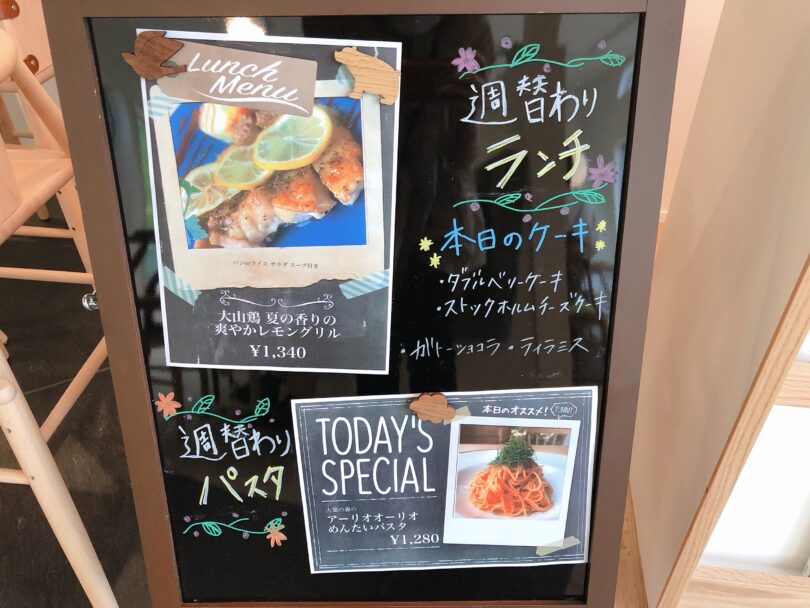 Lunch
Menu
パンorライス サラダ スープ付き
大山鶏 夏の香りの
爽やかレモングリル
¥1,340
週替わり
ランチ
本日のケーキ
・ダブルベリーケーキ
・ストックホルムチーズケーキ
・ガトーショコラ ・ティラミス
週替わり
パスタ
TODAY'S
SPECIAL
本日のオススメ!
YUMMY
大葉の森の
アーリオオーリオ
めんたいパスタ
¥1,280